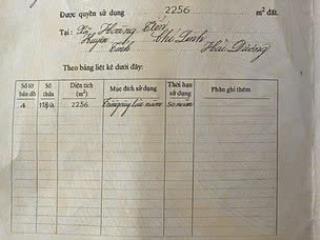 Được quyền sử dụng 2256 m² đất.
Tại: Xã Hoàng Tiến
Huyện Chí Linh
Tỉnh Hải Dương
Theo bảng liệt kê dưới đây:
Số tờ bản đồ Số thửa Diện tích (m²) Mục đích sử dụng Thời hạn sử dụng Phần ghi thêm
2256 50 năm